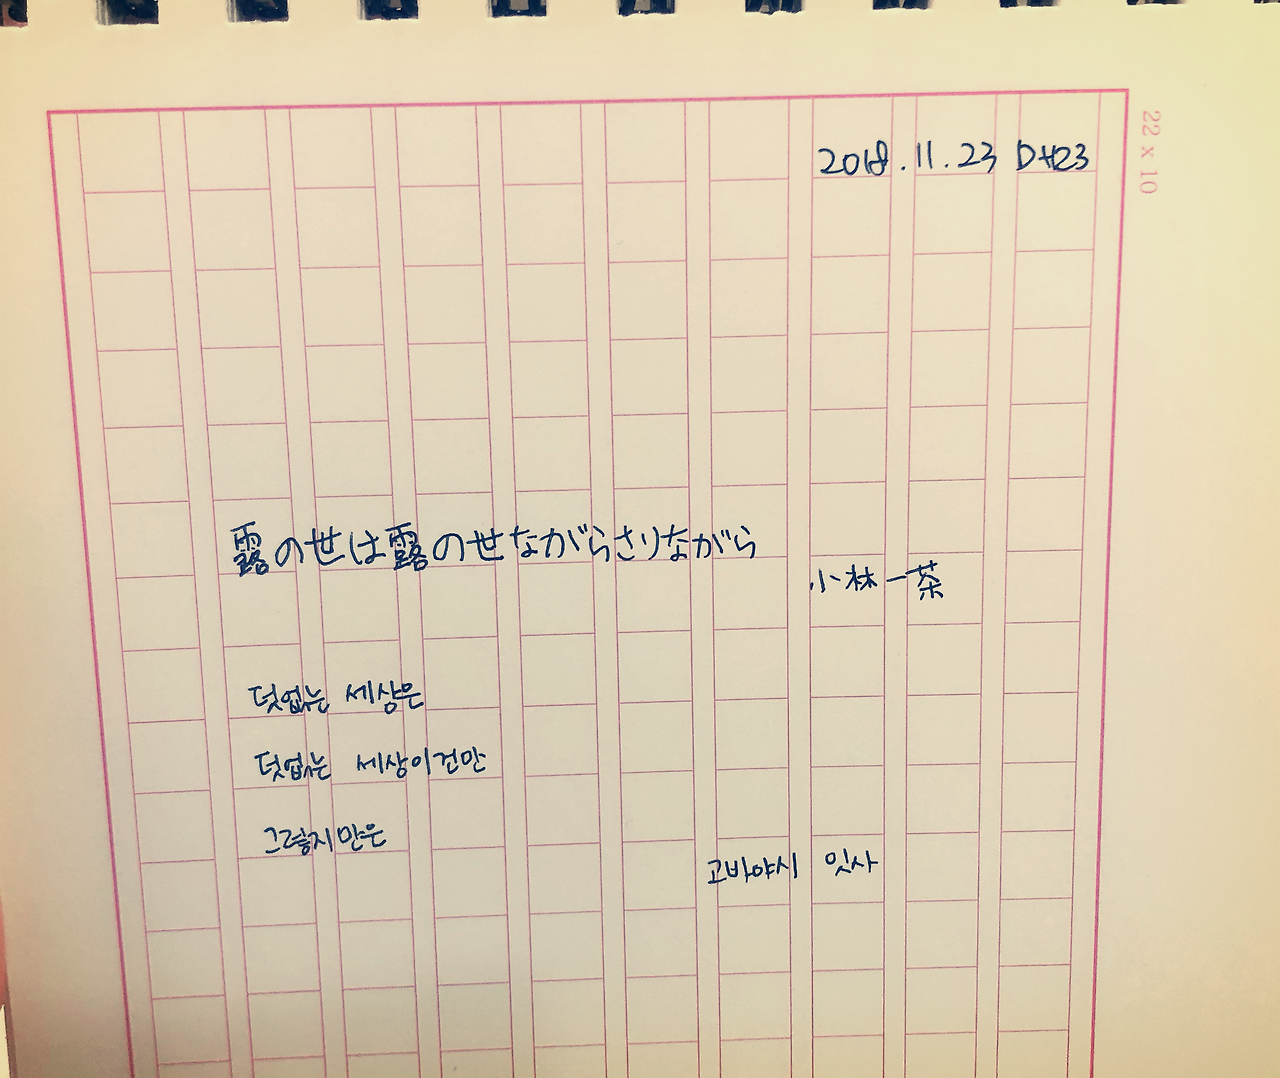 2018.11.23 D+23
22 x 10
露の世は露の世ながらさりながら
小林一茶
덧없는 세상은
덧없는 세상이건만
그렇지만은
고바야시 잇사